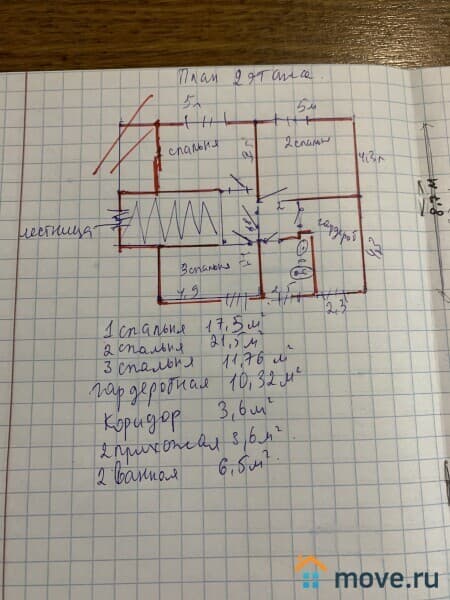 План 2 этажа.
5м 5м
спальня 2спальня 4,3м
лестница гардероб
3спальня
4,9 2,3
1 спальня 17,5м²
2 спальня 21,5м²
3 спальня 11,76 м²
гардеробная 10,32м²
Коридор 3,6м²
2 прихожая 3,6м²
2 ванная 6,5м²
move.ru